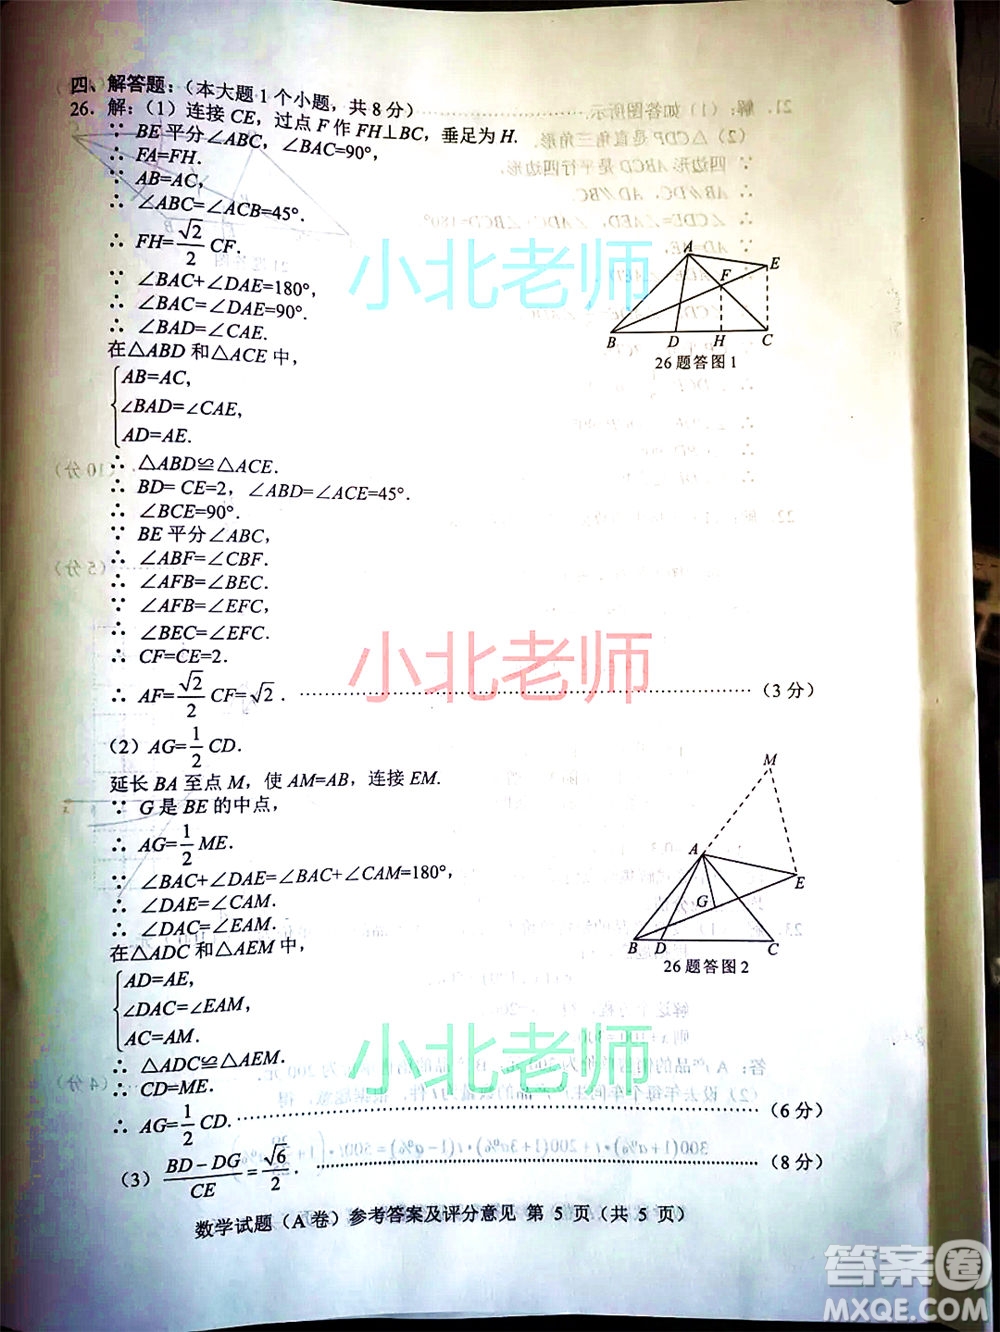 四、解答题：（本大题 1 个小题，共 8 分）
26．解：（1）连接 CE，过点 F 作 FH⊥BC，垂足为 H.
∵ BE 平分∠ABC，∠BAC=90°，
∴ FA=FH.
∵ AB=AC，
∴ ∠ABC=∠ACB=45°.
∴ FH=√2/2 CF.
∵ ∠BAC+∠DAE=180°，
∴ ∠BAC=∠DAE=90°.
∴ ∠BAD=∠CAE.
在△ABD 和△ACE 中，
AB=AC，
∠BAD=∠CAE，
AD=AE.
∴ △ABD≌△ACE.
∴ BD= CE=2，∠ABD=∠ACE=45°.
∴ ∠BCE=90°.
∵ BE 平分∠ABC，
∴ ∠ABF=∠CBF.
∴ ∠AFB=∠BEC.
∵ ∠AFB=∠EFC，
∴ ∠BEC=∠EFC.
∴ CF=CE=2.
∴ AF=√2/2 CF=√2 . （3 分）
A
E
F
B
D
H
C
26题答图1
（2）AG=1/2 CD.
延长 BA 至点 M，使 AM=AB，连接 EM.
∵ G 是 BE 的中点，
∴ AG=1/2 ME.
∵ ∠BAC+∠DAE=∠BAC+∠CAM=180°，
∴ ∠DAE=∠CAM.
∴ ∠DAC=∠EAM.
在△ADC 和△AEM 中，
AD=AE，
∠DAC=∠EAM，
AC=AM.
∴ △ADC≌△AEM.
∴ CD=ME.
∴ AG=1/2 CD. （6 分）
M
A
E
G
B
D
C
26题答图2
（3）(BD－DG)/CE=√6/2. （8 分）
数学试题（A 卷）参考答案及评分意见 第 5 页（共 5 页）
小北老师
小北老师
小北老师
答案圈
MXQE.COM